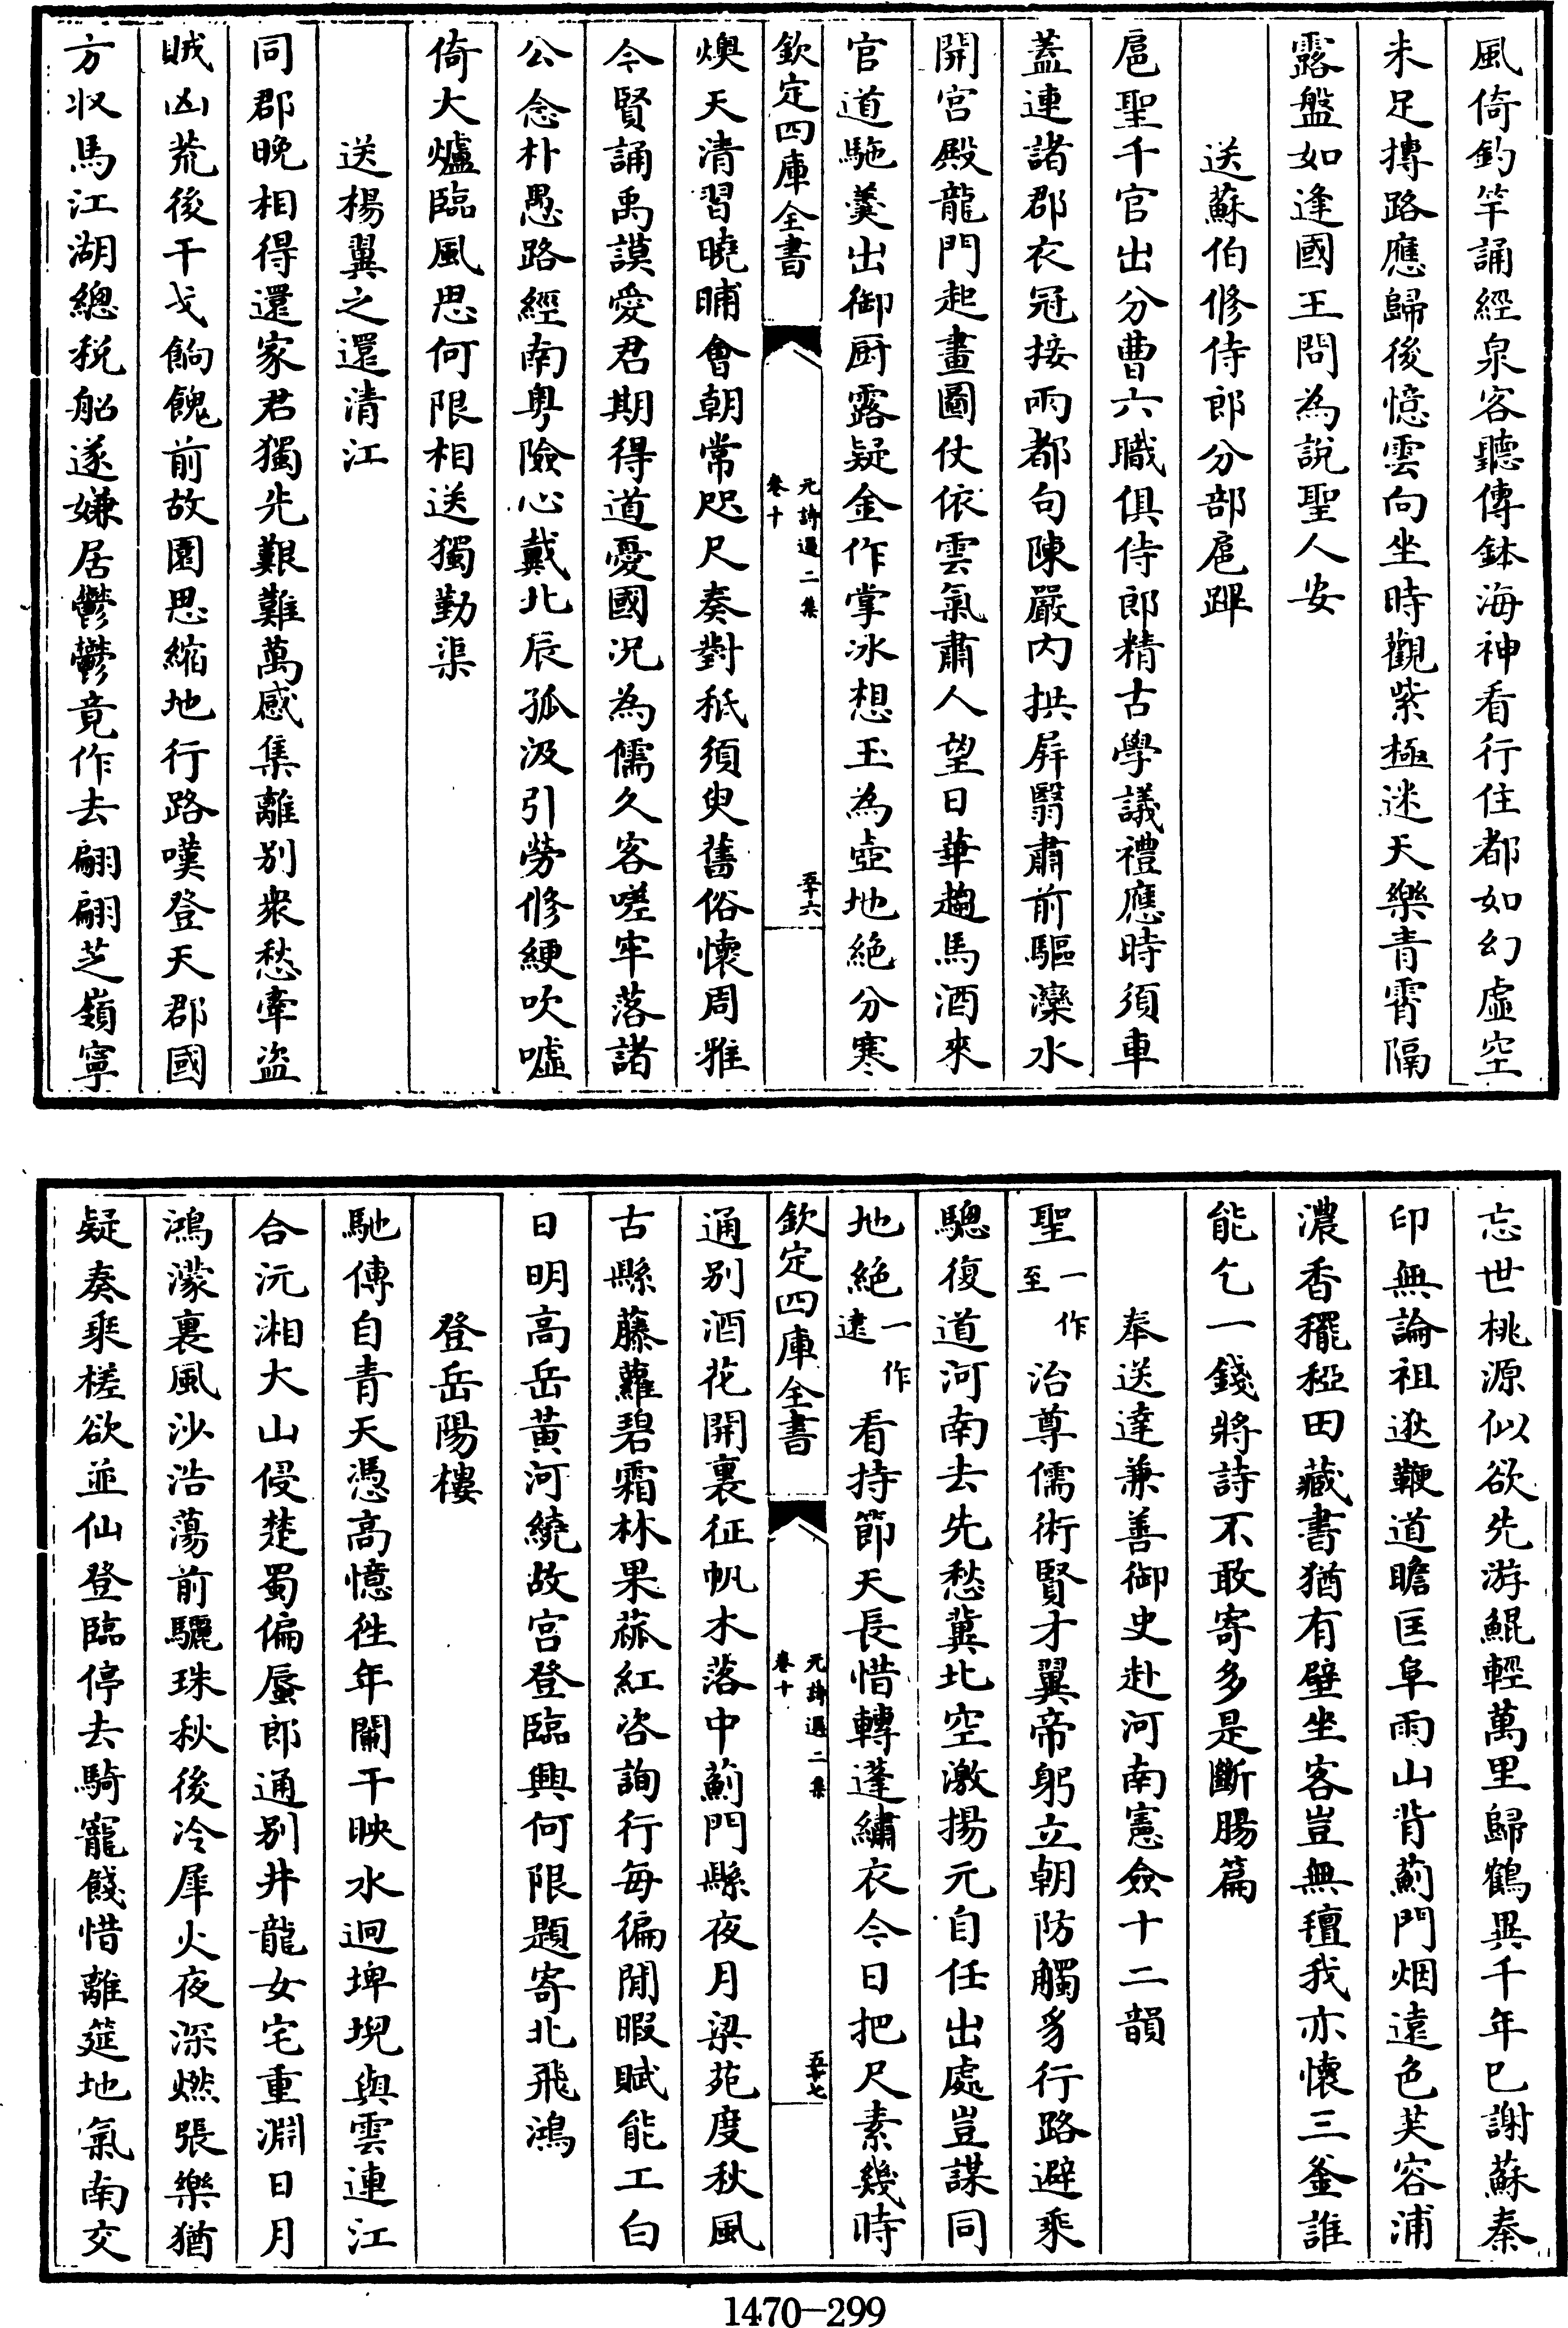 風倚釣竿誦經泉客聽傳鉢海神看行住都如幻虚空
未足摶路應歸後憶雲向坐時觀紫極迷天樂青霄隔
露盤如逢國王問為說聖人安
送蘇伯修侍郎分部扈蹕
扈聖千官出分曹六職俱侍郎精古學議禮應時須車
蓋連諸郡衣冠接兩都句陳嚴内拱屏翳肅前驅灤水
開宮殿龍門起畫圖仗依雲氣肅人望日華趨馬酒來
官道駞羮出御厨露疑金作掌冰想玉為壺地絶分寒
欽定四庫全書
元詩選二集
卷十
五十六
燠天清習曉晡會朝常咫尺奏對秪須臾舊俗懷周雅
今賢誦禹謨愛君期得道憂國况為儒久客嗟牢落諸
公念朴愚路經南粤險心戴北辰孤汲引勞修綆吹噓
倚大爐臨風思何限相送獨勤渠
送楊翼之還清江
同郡晚相得還家君獨先艱難萬感集離别衆愁牽盗
賊凶荒後干戈餉餽前故園思縮地行路嘆登天郡國
方收馬江湖總税船遂嫌居鬱鬱竟作去翩翩芝嶺寧
忘世桃源似欲先游鯤輕萬里歸鶴異千年已謝蘇秦
印無論祖逖鞭道瞻匡阜雨山背薊門烟遠色芙容浦
濃香䆉稏田藏書猶有壁坐客豈無氊我亦懷三釜誰
能乞一錢將詩不敢寄多是斷腸篇
奉送達兼善御史赴河南憲僉十二韻
聖一作至治尊儒術賢才翼帝躬立朝防觸豸行路避乘
驄復道河南去先愁冀北空激揚元自任出處豈謀同
地絶一作逺看持節天長惜轉蓬繡衣今日把尺素幾時
欽定四庫全書
元詩選二集
卷十
五十七
通别酒花開裏征帆木落中薊門縣夜月梁苑度秋風
古縣藤蘿碧霜林果蓏紅咨詢行每徧閒暇賦能工白
日明高岳黃河繞故宫登臨興何限題寄北飛鴻
登岳陽樓
馳傳自青天憑高憶徃年闌干映水迥埤堄與雲連江
合沅湘大山侵楚蜀偏蜃郎通别井龍女宅重淵日月
鴻濛裏風沙浩蕩前驪珠秋後冷犀火夜深燃張樂猶
疑奏乘槎欲並仙登臨停去騎寵餞惜離筵地氣南交
1470-299